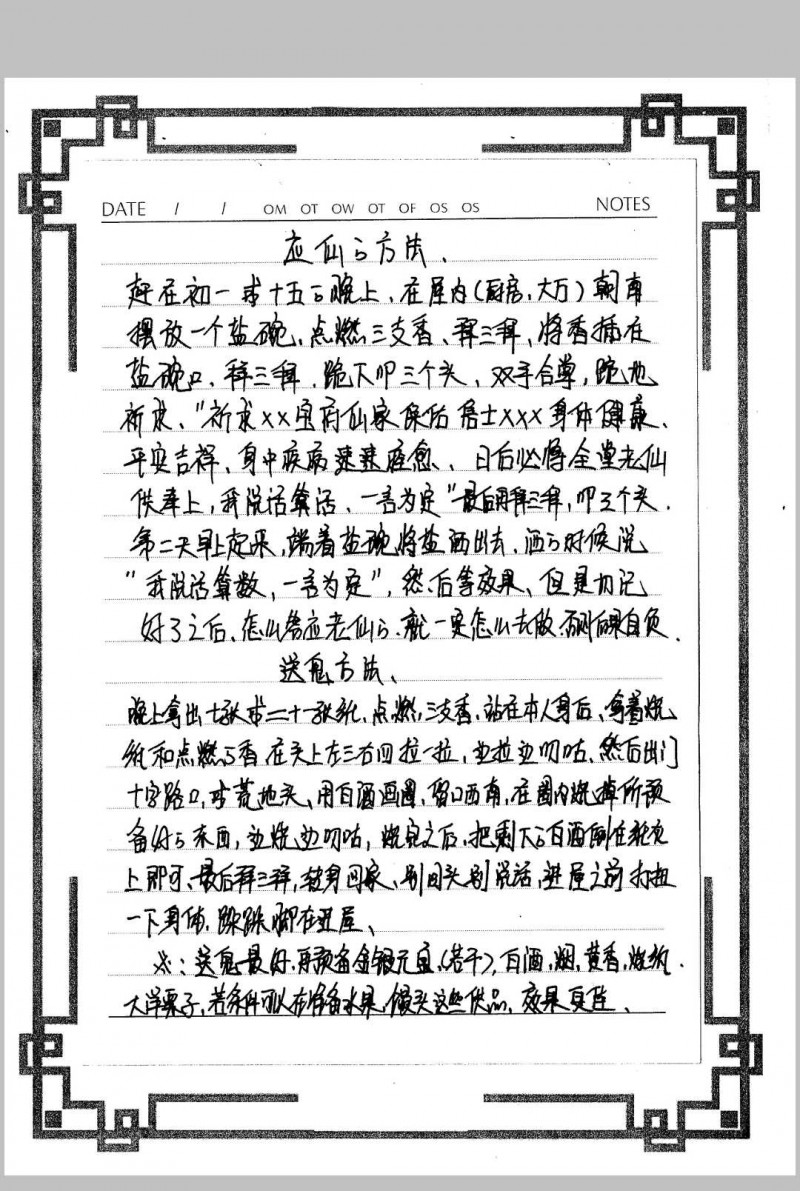 DATE / / OM OT OW OT OF OS OS NOTES
应仙的方法、
赶在初一或十五的晚上，在屋内（厨房，大厅）朝南
摆放一个盐碗，点燃三支香、拜三拜，将香插在
盐碗口，拜三拜，跪下叩三个头，双手合掌，跪地
祈求、“祈求××宝府仙家保佑居士×××身体健康、
平安吉祥，身中疾病速速痊愈、日后必将全堂老仙
供奉上，我说话算话、一言为定”最后再拜三拜，叩三个头．
第二天早上起来，端着盐碗将盐洒出去，洒的时候说
“我说话算数，一言为定”，然后等效果、但是切记
好了之后、怎么答应老仙的、就一定怎么去做，否则后果自负．
送鬼方法、
晚上拿出七张或二十一张纸，点燃三支香，站在本人身后、拿着烧
纸和点燃的香，在头上左三右四拉一拉，边拉边叨咕，然后出门
十字路口，或荒地头，用白酒画圈，留口西南，在圈内烧掉所预
备好的东西，边烧边叨咕，烧完之后，把剩下的白酒倒在
上即可、最后拜三拜，转身回家、别回头别说话，进屋之前打扭
一下身体，跺跺脚在进屋、
※：送鬼最好，再预备金银元宝（若干），白酒，烟，黄香，烧纸．
大洋票子，若条件可以在准备水果，馒头这些供品，效果更佳．